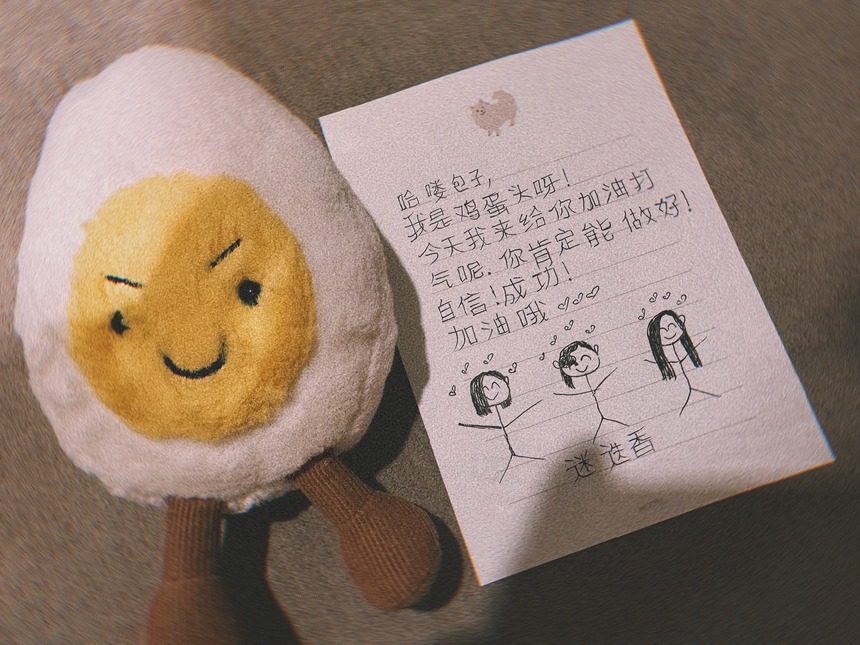 哈喽包子,
我是鸡蛋头呀!
今天我来给你加油打
气呢.你肯定能做好!
自信!成功!
加油哦
迷迭香